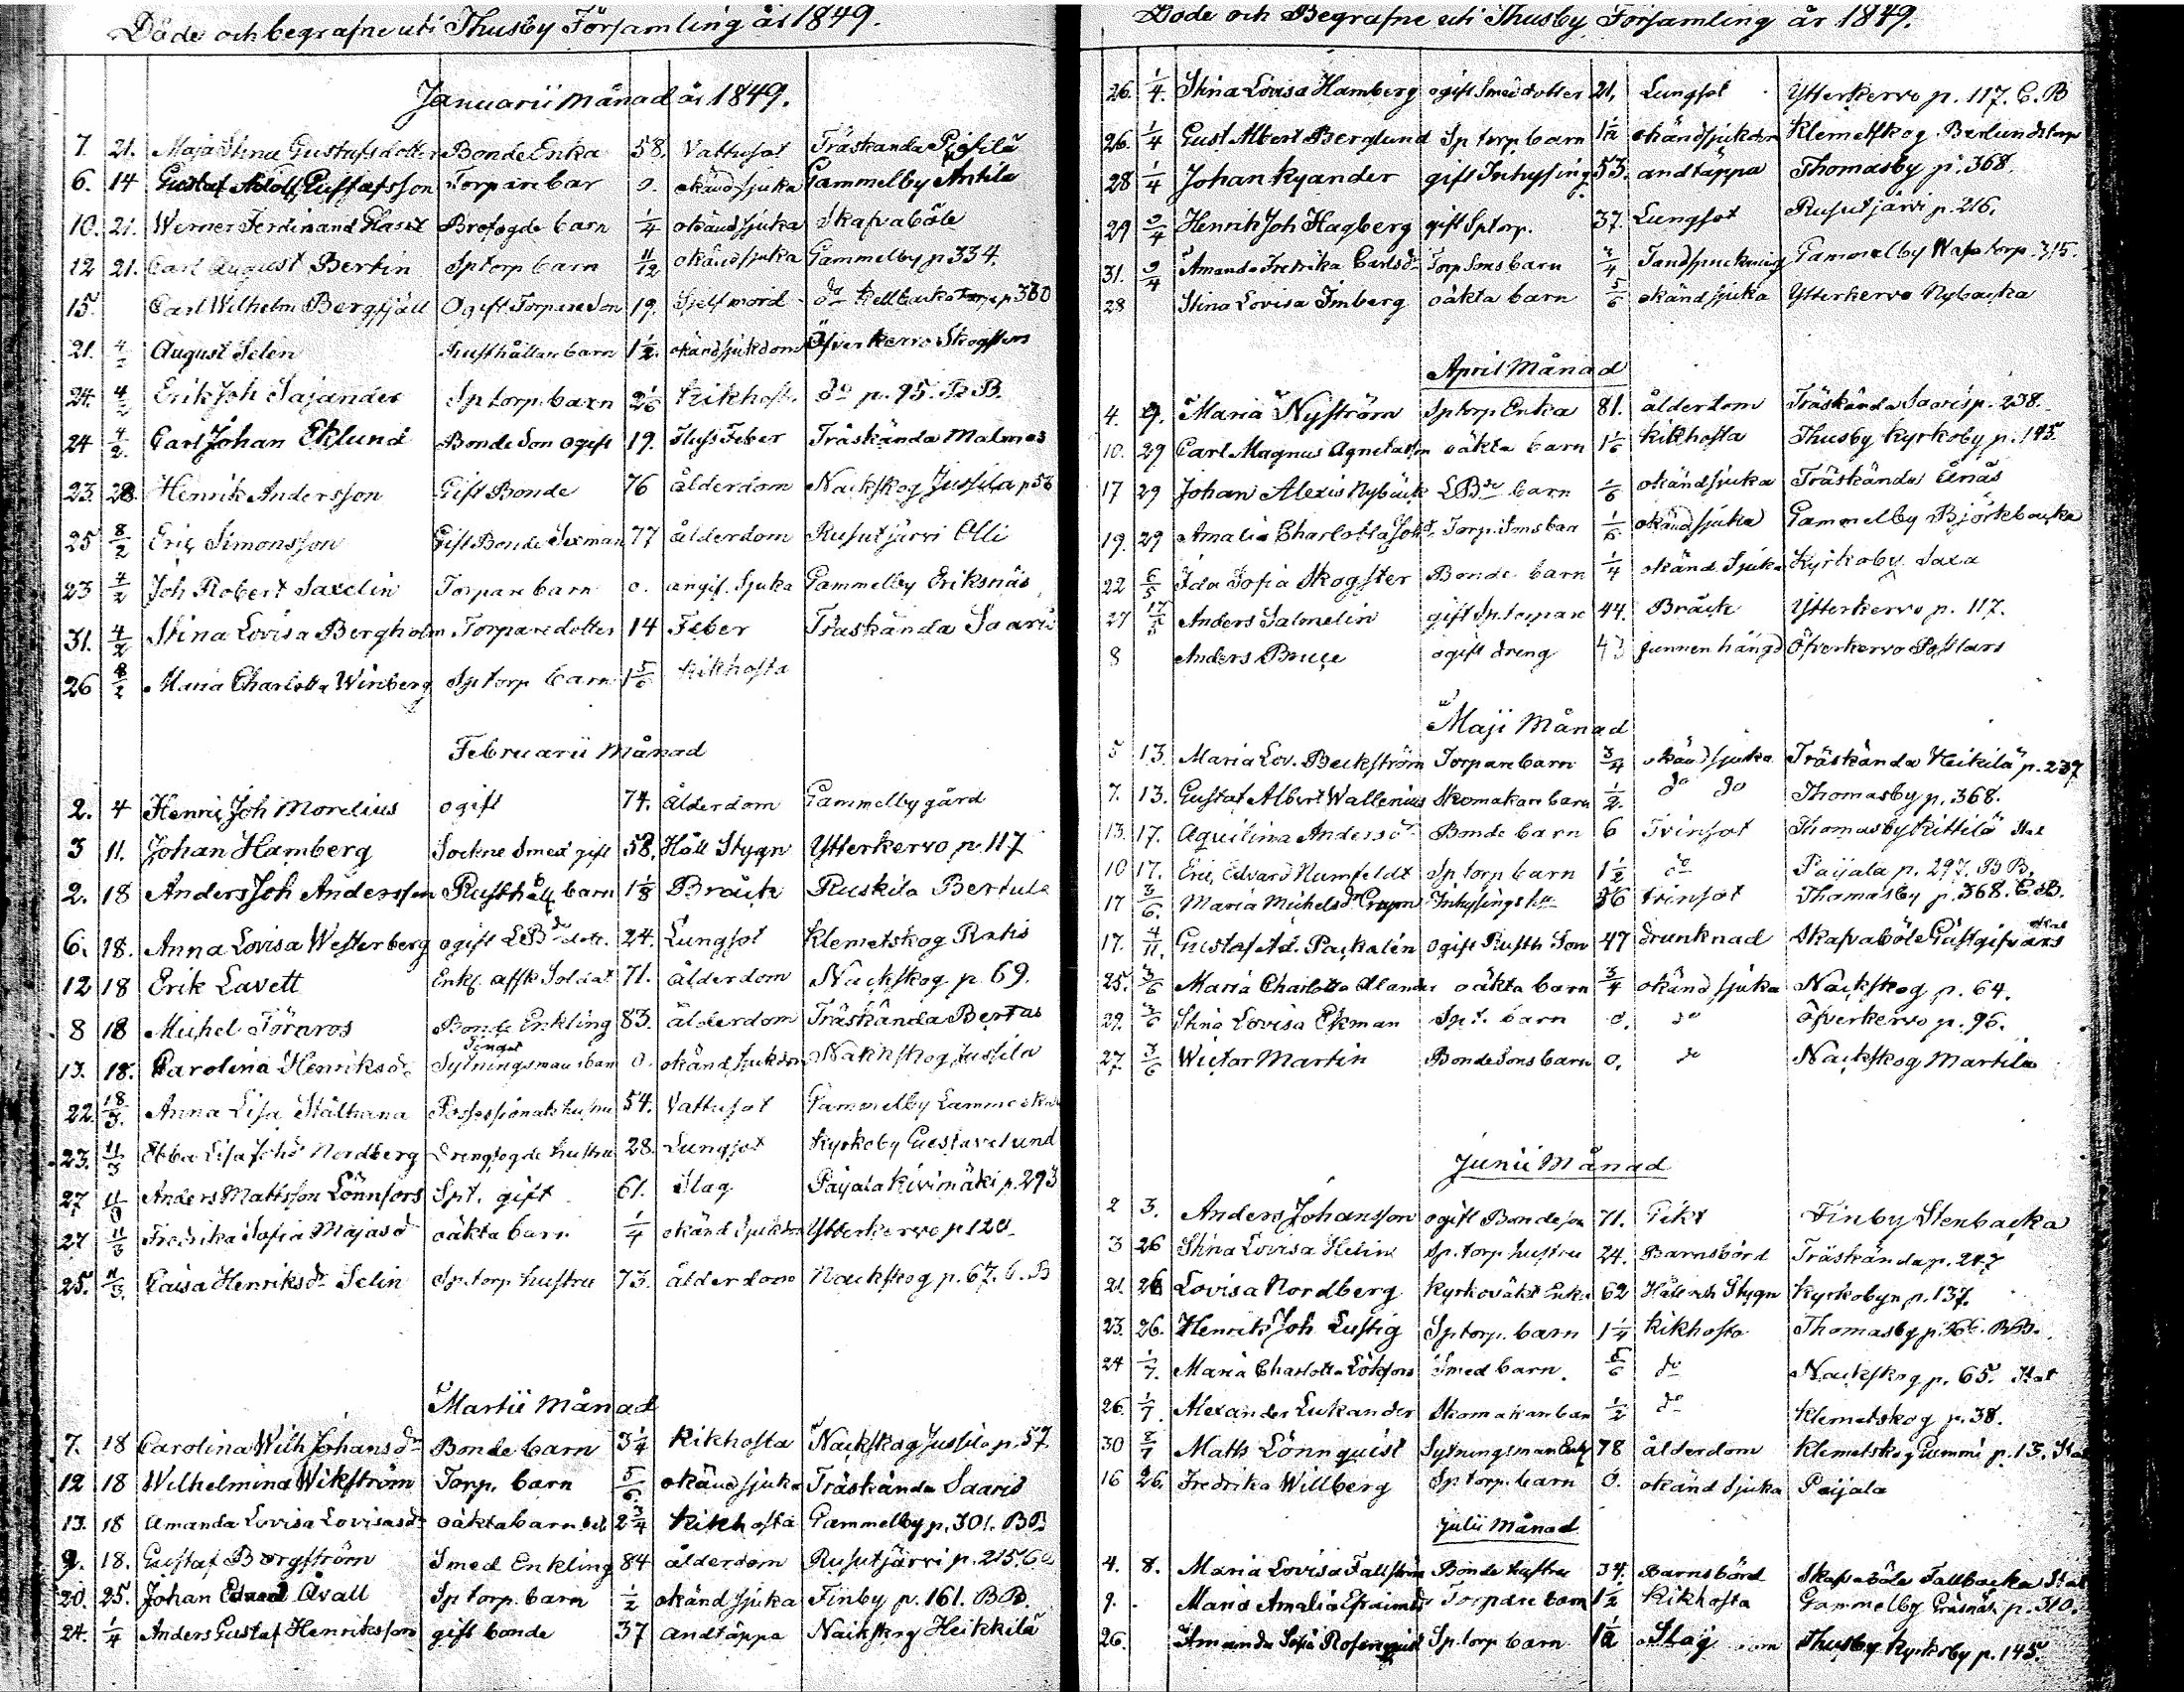 Döde och begrafne uti Thusby Församling år 1849.
Januarii månad år 1849.
7. 21. Maja Stina Gustafsdotter Bonde Enka 58. Vattusot Träskända Pigilä
6. 14 Gustaf Adolf Gustafsson Torpare bar 0. okänd sjuka Gammelby Antila
10. 21. Werner Ferdinand Brofogde barn 1/4 okänd sjuka Skafvaböle
12 21. Carl August Bertin Sp torp barn 11/12 okänd sjuka Gammelby p 334.
15. Carl Wilhelm Bergfjäll Ogift Torpare Son 19. Sjelfmord do Kellbacka torp p 360
21. 4/2 August Selen Rusthållar barn 1 1/2. okänd sjukdom Öfverkervo Skogsters
24. 4/2 Erik Joh Sajander Sp torp. barn 2 1/6 Kikhost. do p. 95. B B.
24 4/2. Carl Johan Eklund Bonde Son ogift 19. Feber Träskända Malmas
23. 28. Henrik Andersson Gift Bonde 76 ålderdom Nackskog Jussila p 56
25 8/2 Eric Simonsson Gift Bonde Sexman 77 ålderdom Rusutjärvi Olli
23 4/2 Joh Robert Saxelin Torpare barn 0. angif. Sjuka Gammelby Eriksnäs
31. 4/2 Stina Lovisa Bergholm Torpare dotter 14 Feber Träskända Saaris
26 8/2 Maria Charlotta Winberg Sp torp barn 1 5/6 kikhosta
Februarii månad
2. 4 Henric Joh Morelius ogift 74. ålderdom Gammelby gård
3 11. Johan Hamberg Sockne Smed gift 58. Håll Stygn Ytterkervo p. 117
2. 18 Anders Joh Andersson Rusthåll barn 1 1/8 Bråck Ruskila Bertula
6. 18. Anna Lovisa Westerberg ogift LBde dott. 24. Lungsot Klemetskog Ratis
12 18 Erik Lavett Enkl affsk Soldat 71. ålderdom Nackskog p. 69.
8 18 Michel Törnros Bonde Enkling 83. ålderdom Träskända Bertas
13. 18. Carolina Henriksdr Sytningsmans barn 0. okänd sjukdom Nackskog Jussila
22. 18/3. Anna Lisa Stålhana Possessionats hustru 54. Vattusot Gammelby
23. 11/3 Ebba Lisa Johsdr Nordberg Drengfogde hustru 28. Lungsot Kyrkoby Gustavelund
27 11/3 Anders Mattsson Lönnfors Spt. gift 61. Slag Paijala Kivimäki p. 293
27 11/3 Fredrika Sofia Majasdr oäkta barn 1/4 okänd sjukdom Ytterkervo p 120
25. 11/3. Caisa Henriksdr Selin Sp. torp hustru 73. ålderdom Nackskog p. 67. C. B
Martii månad
7. 18 Carolina Wilh Johansdr Bonde barn 3 1/4 Kikhosta Nackskog Jussila p. 57
12 18 Wilhelmina Wikström Torp. barn 5/6 okänd sjuka Träskända Saaris
13. 18 Amanda Lovisa Lovisasdr oäkta barn 2 3/4 Kikhosta Gammelby p. 301. BB
9. 18. Gustaf Bergström Smed Enkling 84 ålderdom Rusutjärvi p. 215.
20. 25. Johan Edvard Avall Sp torp. barn 1/2 okänd sjuka Finby p. 161. BB.
24. 1/4 Anders Gustaf Henriksson gift bonde 37 andtäppa Nackskog Heikkilä
Döde och Begrafne uti Thusby Församling år 1849.
26. 1/4. Stina Lovisa Hamberg ogift Smed dotter 21. Lungsot Ytterkervo p. 117. C. B
26. 1/4 Gust Albert Berglund Sp torp barn 1 1/2 okänd sjukdom Klemetskog
28 1/4 Johan Kyander gift Inhysing 53. andtäppa Thomasby p. 368.
29 9/4 Henrik Joh Hagberg gift Sp torp. 37. Lungsot Rusutjärvi p. 216.
31. 9/4 Amanda Fredrika Carlsdr Torp Sons barn 3/4 Tandsprickning Gammelby torp. 315.
28 Stina Lovisa Imberg oäkta barn 5/6 okänd sjuka Ytterkervo Nybacka
April Månad
4. 9. Maria Nyström Sp torp Enka 81. ålderdom Träskända Saaris p. 238.
10. 29 Carl Magnus Agnetasson oäkta barn 1 1/6 kikhosta Thusby Kyrkoby p. 145.
17 29 Johan Alexis Nybäck LBde barn 1/6 okänd sjuka Träskända Elnäs
19. 29 Amalia Charlotta Johsdr Torp. Sons bar 1/6 okänd sjuka Gammelby Björkbacka
22 6/5 Ida Sofia Skogster Bonde barn 1/4 okänd Sjuka Kyrkoby Saxa
27 17/5 Anders Salmelin gift Sp. torpare 44. Bräck Ytterkervo p. 117.
8 Anders Bruce ogift dreng 43 funnen hängd Öfverkervo
Maji Månad
5 13. Maria Lov. Beckström Torpare barn 3/4 okänd sjuka Träskända Heikilä p. 237
7. 13. Gustaf Albert Wallenius Skomakare barn 1/2. do do Thomasby p. 368.
13. 17. Aquilina Andersdr Bonde barn 6 Tvinsot Thomasby Kittilä
10 17. Eric Edvard Numfeldt Sp torp barn 1 1/2 do Paijala p. 297. B B.
17 3/6. Maria Michelsdr Inhysings hu 36 tvinsot Thomasby p. 368. C. B.
17. 4/11. Gustaf Ad. Packalén ogift Rusth Son 47 drunknad Skafvaböle Gästgifvars
25. 3/6 Maria Charlotta Alander oäkta barn 3/4 okänd sjuka Nackskog p. 64.
29. 3/6 Stina Lovisa Ekman Sp. t. barn 0. do Öfverkervo p. 96.
27. 3/6 Victor Martin Bonde Sons barn 0. do Nackskog Martila
Junii Månad
2 3. Anders Johansson ogift Bonde son 71. Gikt Finby Stenbacka
3 26 Stina Lovisa Helin Sp. torp hustru 24. Barnsbörd Träskända p. 247
21. 26 Lovisa Nordberg Kyrkoväkt Enka 62 Håll och Stygn Kyrkobyn p. 137.
23. 26. Henrik Joh Lustig Sp torp. barn 1 1/4 Kikhosta Thomasby p. 366. BB.
24 1/7. Maria Charlotta Löfors Smed barn. 5/6 do Nackskog p. 65.
26. 1/7. Alexander Lukander Skomakare bar 1/2 do Klemetskog p. 38.
30 8/7 Matts Lönnquist Sytningsman Enkl 78 ålderdom Klemetskog Gammi p. 13.
16 26. Fredrika Willberg Sp torp. barn 0. okänd sjuka Paijala
Julii Månad
4. 8. Maria Lovisa Fallström Bonde hustru 34. Barnsbörd Skafvaböle Tallbacka
9. Maria Amalia Efraimsdr Torpare barn 1 1/2 Kikhosta Gammelby Gräsnäs p. 310.
26. Amanda Sofia Rosenquist Sp torp barn 1 1/2 Slag Thusby Kyrkoby p. 145.